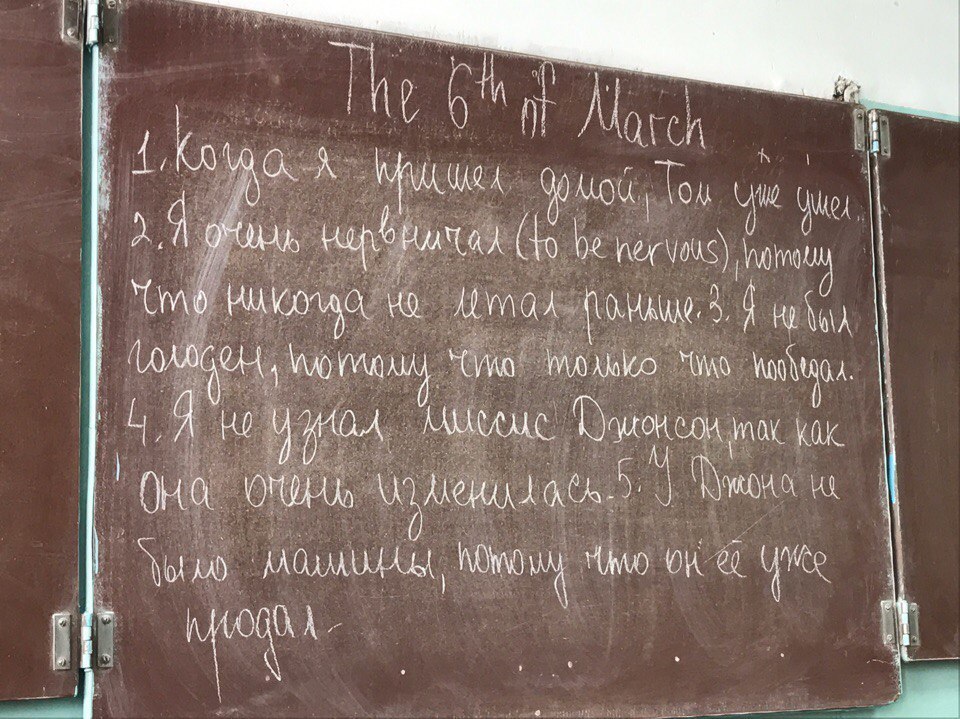 The 6th of March
1. Когда я пришел домой, Том уже ушел.
2. Я очень нервничал (to be nervous), потому
что никогда не летал раньше. 3. Я не был
голоден, потому что только что пообедал.
4. Я не узнал миссис Джонсон, так как
она очень изменилась. 5. У Джона не
было машины, потому что он её уже
продал.